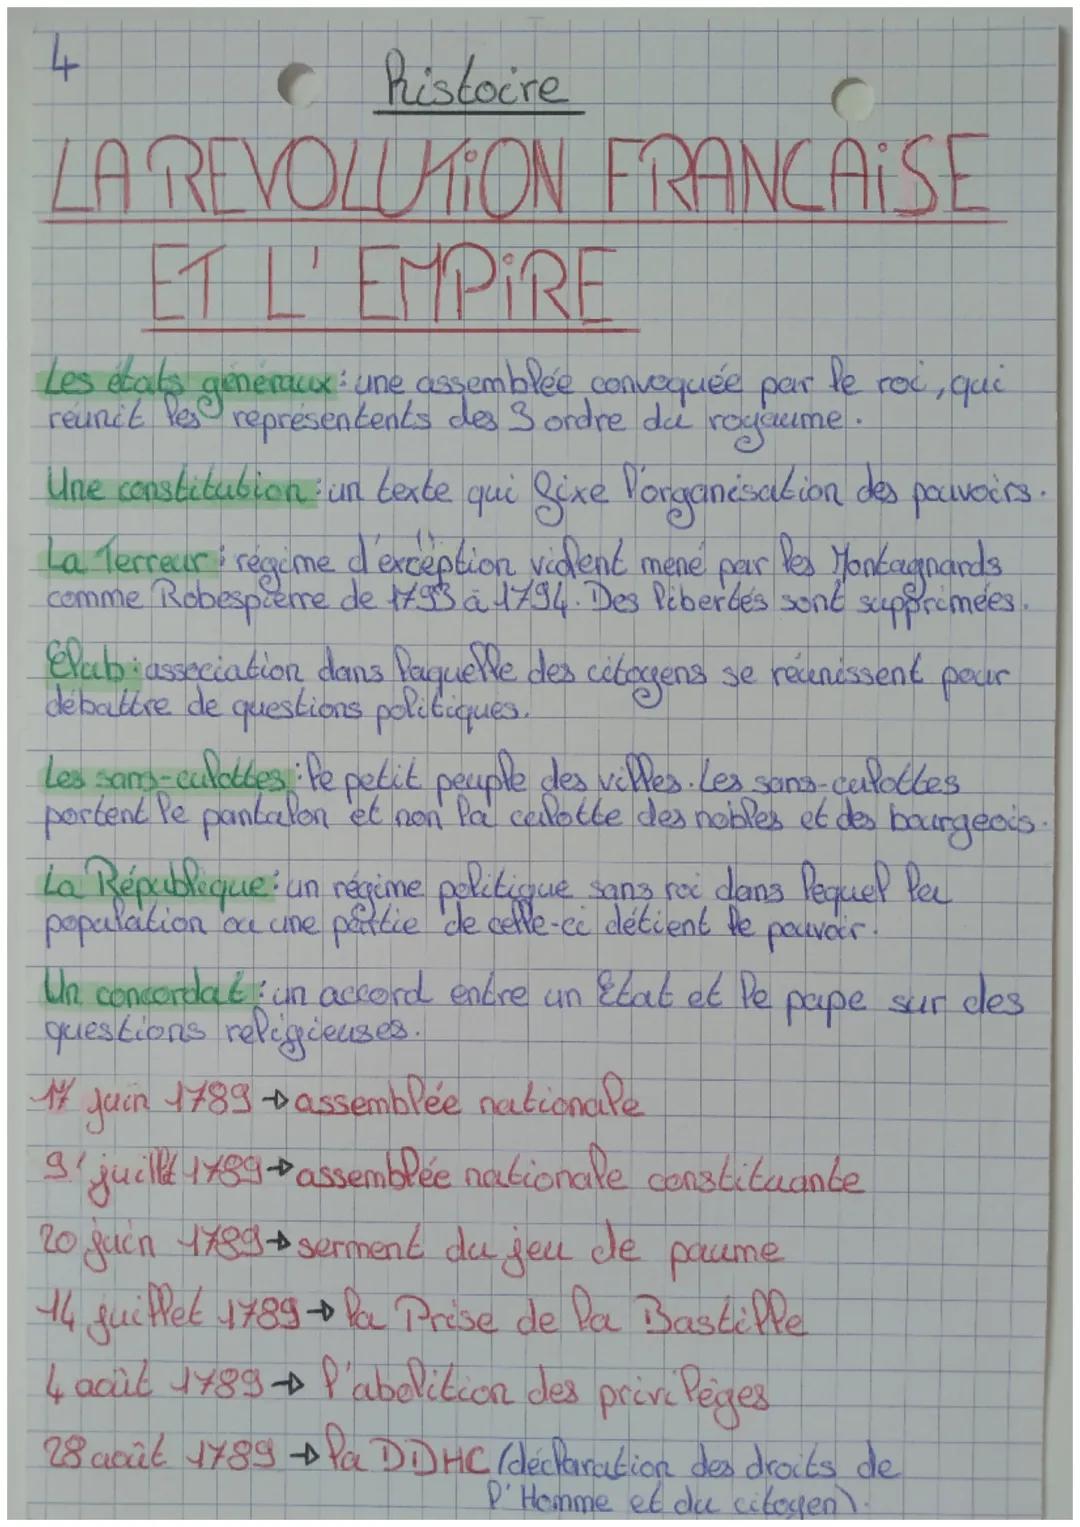 4
Histoire
LA REVOLUTION FRANCAISE
ET L'EMPIRE
Les états généraux : une assemblée convoquée par le roi, qui
réunit les représentents des 3 ordre du royaume.
Une constitution : un texte qui fixe l'organisation des pouvoirs.
La Terreur : régime d'exception violent mené par les Montagnards
comme Robespierre de 1793 à 1794. Des libertés sont supprimées.
Club : association dans laquelle des citoyens se réunissent pour
débattre de questions politiques.
Les sans-culottes : le petit peuple des villes. Les sans-culottes
portent le pantalon et non la culotte des nobles et des bourgeois.
La République : un régime politique sans roi dans lequel la
population ou une partie de celle-ci détient le pouvoir.
Un concordat : un accord entre un Etat et le pape sur des
questions religieuses.
17 juin 1789 → assemblée nationale
9 juillet 1789 → assemblée nationale constituante
20 juin 1789 → serment du jeu de paume
14 juillet 1789 → la Prise de la Bastille
4 août 1789 → l'abolition des privilèges
28 août 1789 → la DDHC (déclaration des droits de
l'Homme et du citoyen).